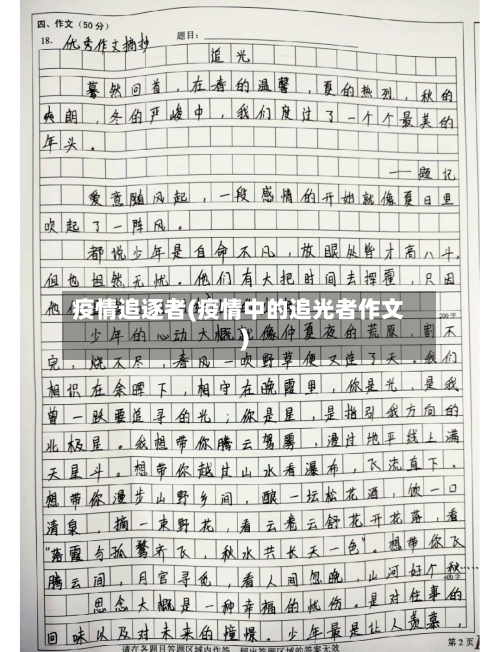 四、作文（50分）
18. 优秀作文摘抄 题目：
追光
蓦然回首，在春的温馨，夏的热烈，秋的
爽朗，冬的严峻中，我们度过了一个个最美的
年头。
——题记
爱意随风起，一段感情的开始就像夏日里
吹起了一阵风。
都说少年是自命不凡，放眼处皆才高八斗，
但也坦然无忧。他们有大把时间去挥霍，只因
他
疫情追逐者(疫情中的追光者作文
)
200字
少年的心动大概就像仲夏夜的荒原，割不
完，烧不尽，春风一吹野草便又连了天。我们
相识在余晖下，相守在晚霞里，你是光，是我
曾一跃要追寻的光；你是星，是指引我方向的
北极星。我想带你腾云驾雾，漫过地平线上满
天星斗。想带你越过山水看瀑布，飞流直下。
想带你漫步山野乡间，酿一坛松花酒，饮一口
清泉，摘一束野花，看云卷云舒花开花落，看
“落霞与孤鹜齐飞，秋水共长天一色”。想带你飞
腾云间，月宫寻仙，看人间忽晚，山河好个秋……
400字
思念大概是一种幸福的忧伤。是对往事的
回味以及对未来的憧憬。少年最是让人羡慕，
请在各题目答题区域内作答，超出答题区域的答案无效
第2页